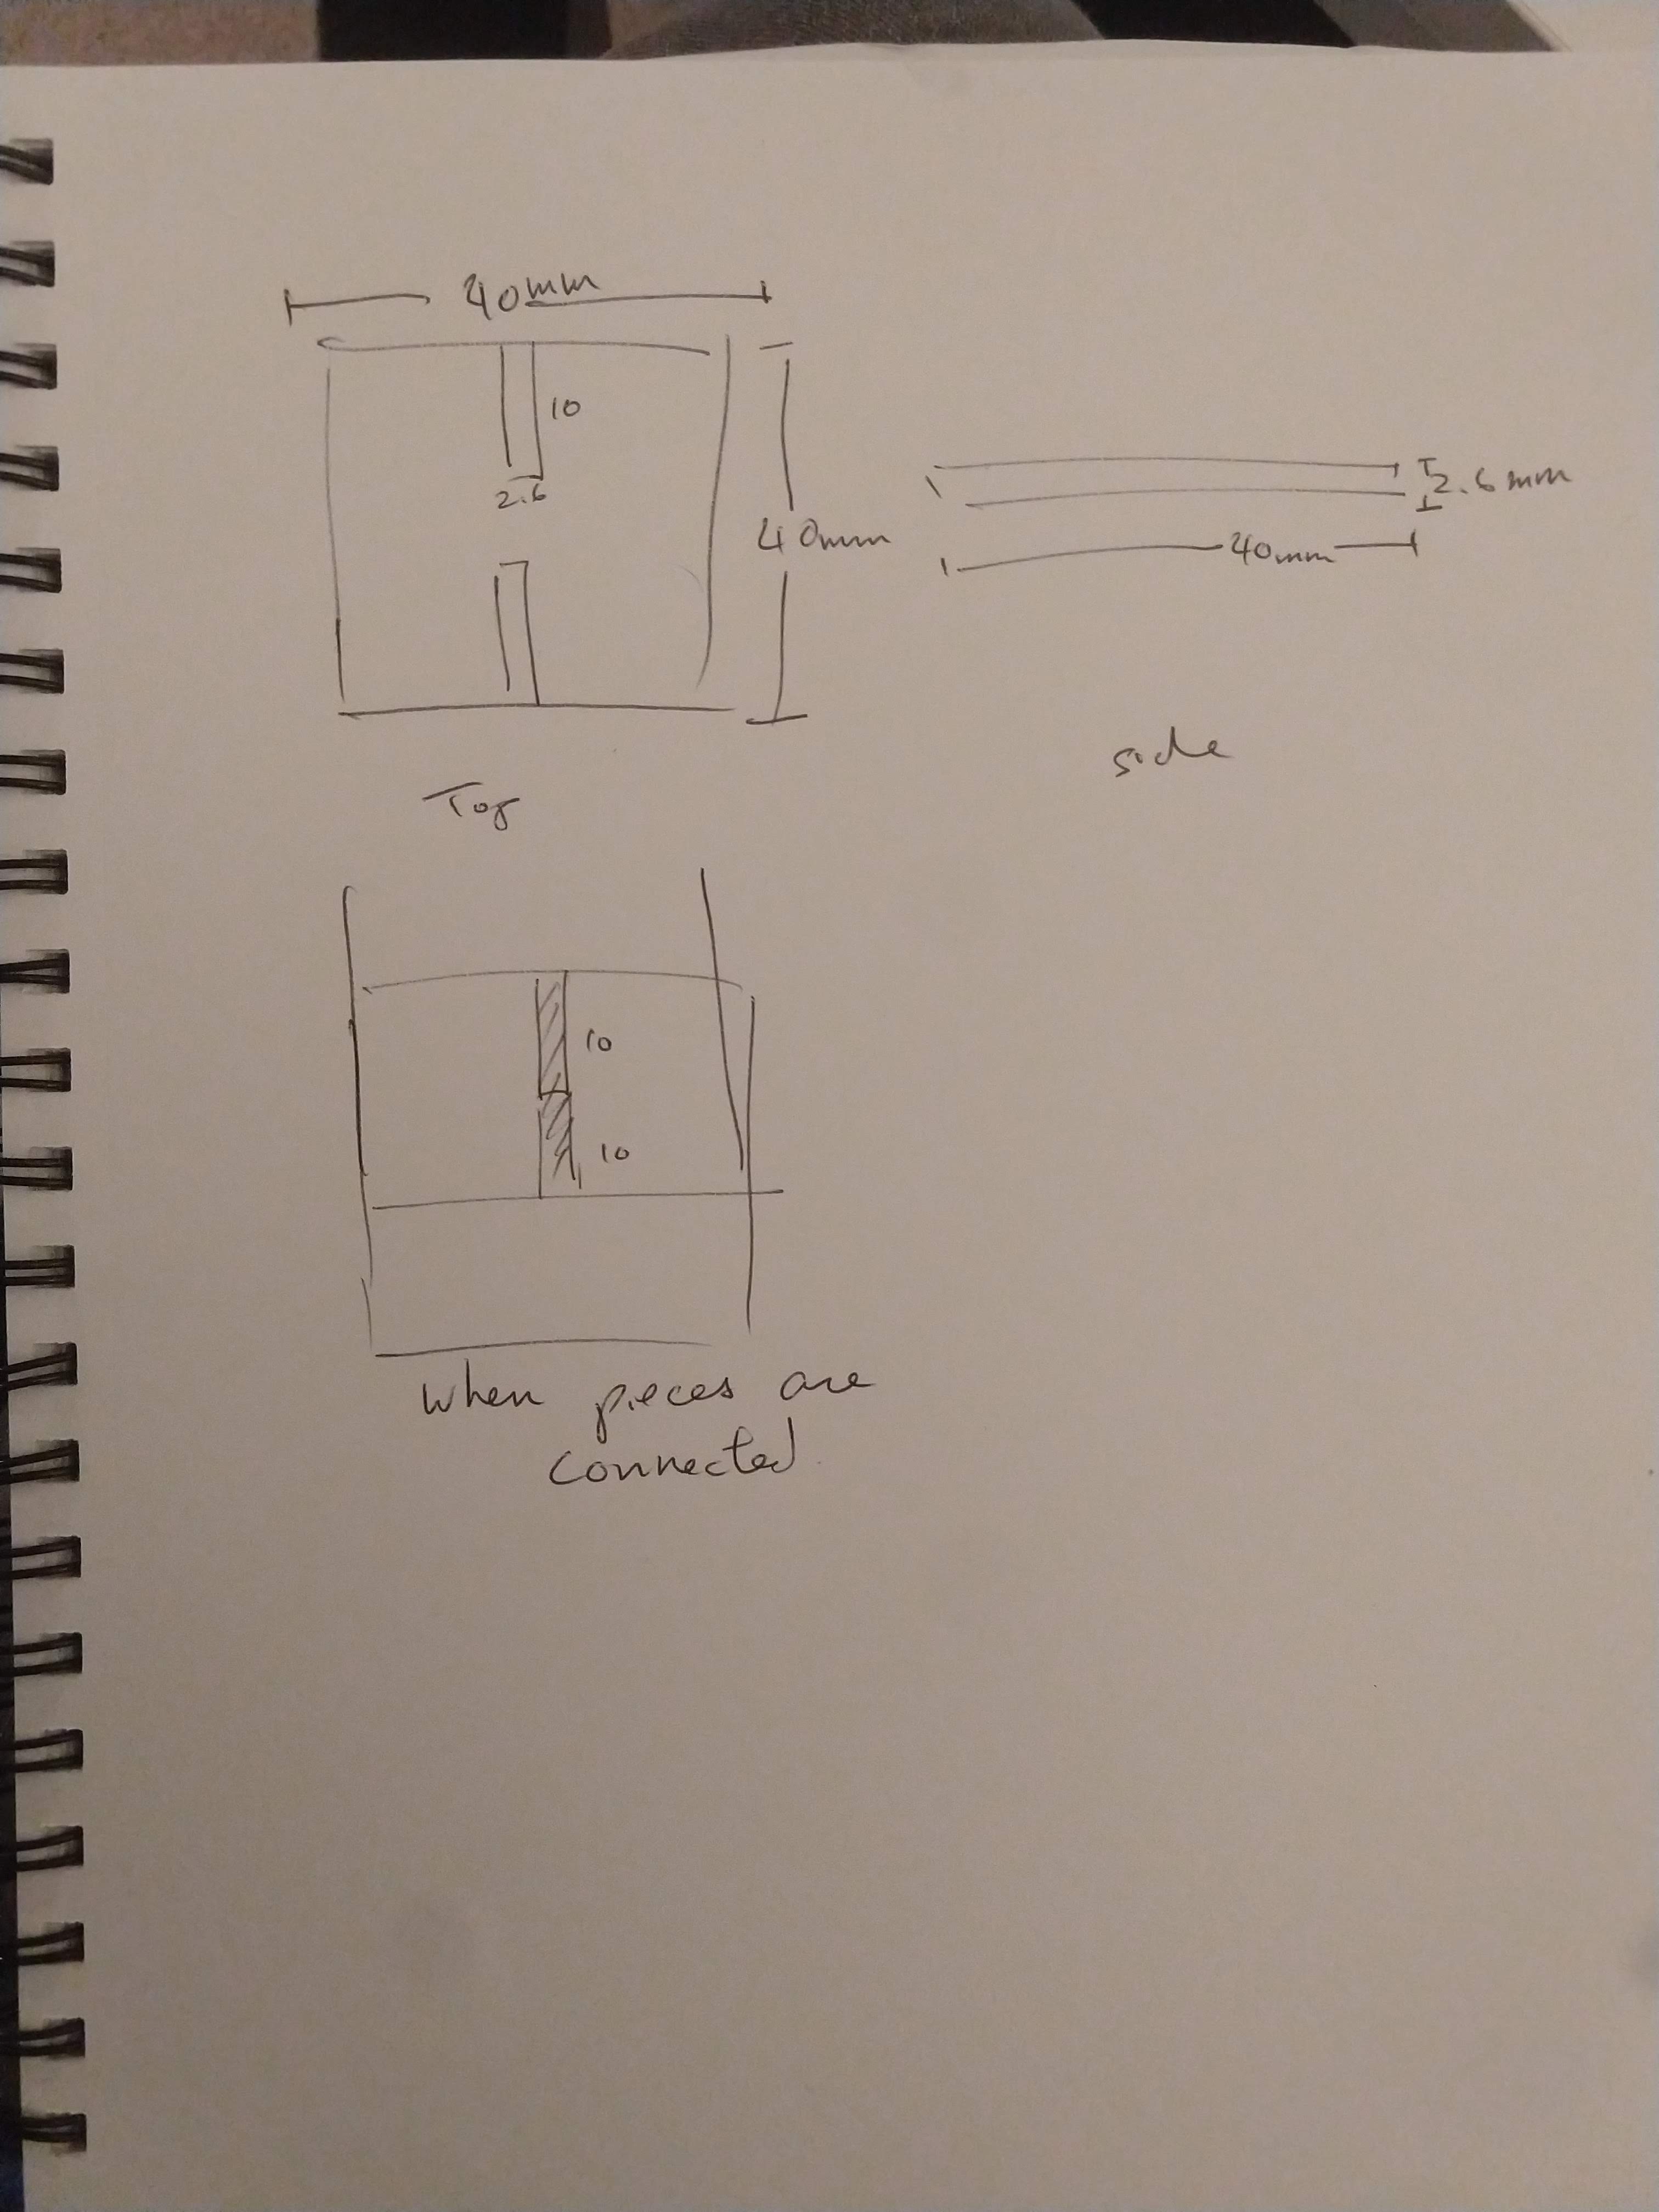 40mm
10
2.6
40mm
Top
2.6mm
40mm
side
10
10
when pieces are
connected